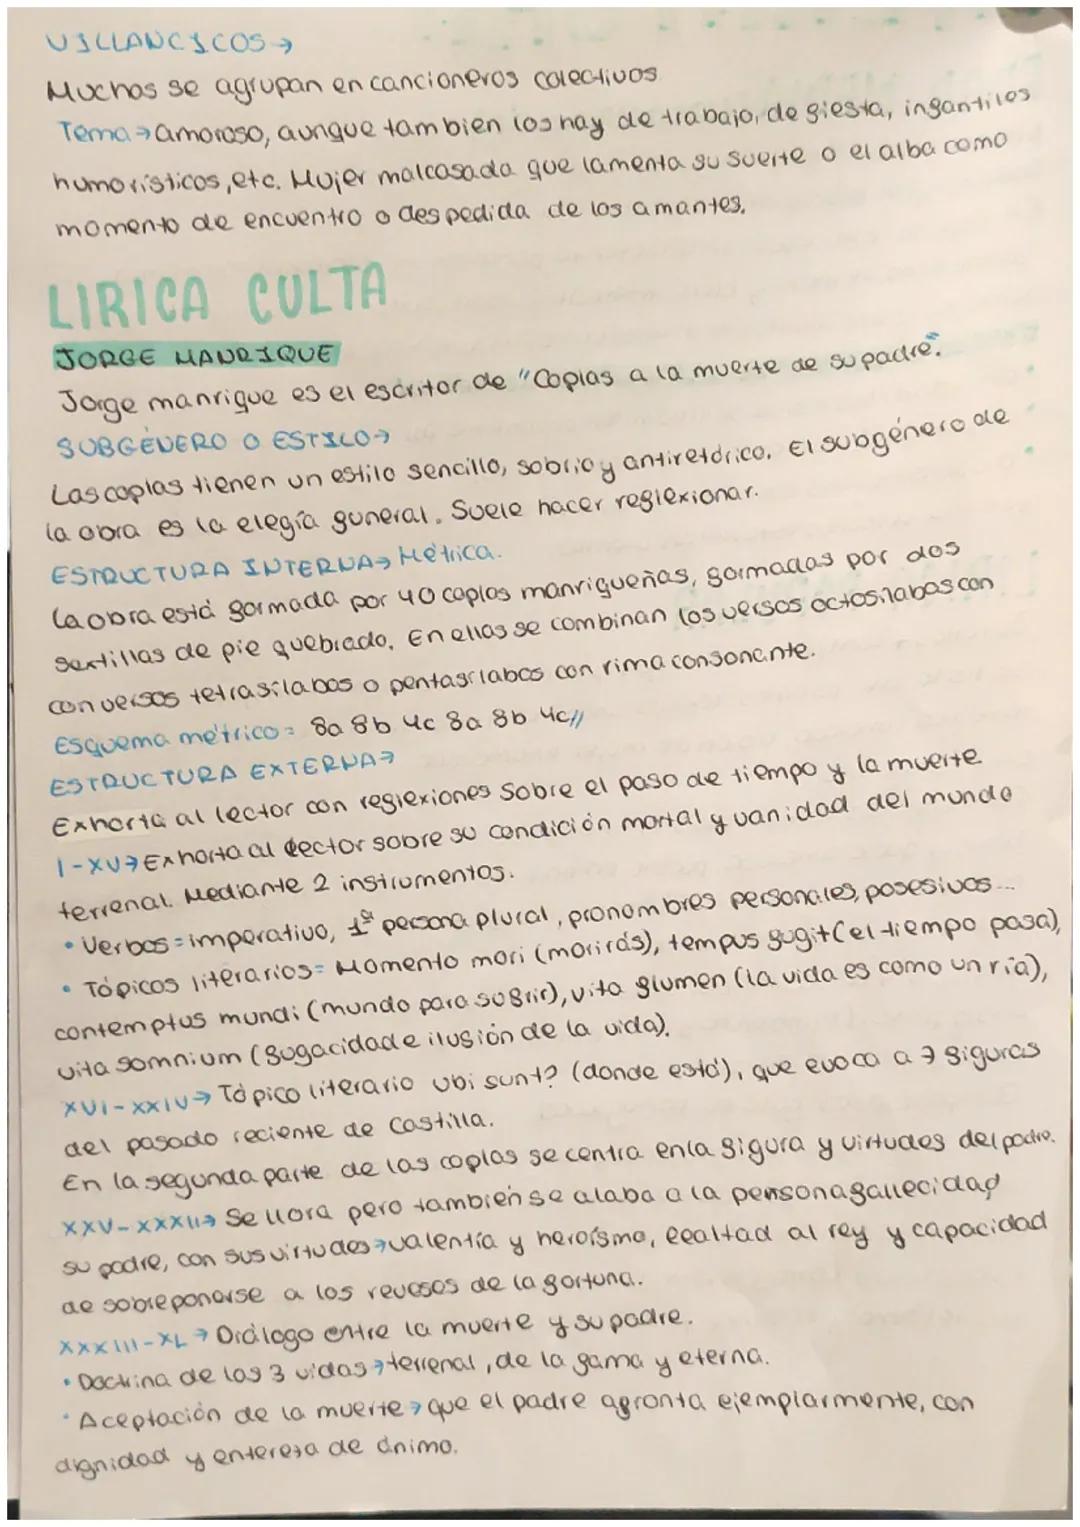 VILLANCICOS →
Muchos se agrupan en cancioneros colectivos
Tema → amoroso, aunque tambien los hay de trabajo, de fiesta, infantiles
humorísticos, etc. Mujer malcasada que lamenta su suerte o el alba como
momento de encuentro o despedida de los amantes.
LIRICA CULTA
JORGE MANRIQUE
Jorge manrique es el escritor de "Coplas a la muerte de su padre".
SUBGÉNERO O ESTILO →
Las coplas tienen un estilo sencillo, sobrio y antiretórico. El subgénero de
la obra es la elegía funeral. Suele hacer reflexionar.
ESTRUCTURA INTERNA → Métrica.
La obra está formada por 40 coplas manriqueñas, formadas por dos
sextillas de pie quebrado. En ellas se combinan los versos octosílabos con
con versos tetrasílabos o pentasílabos con rima consonante.
Esquema métrico = 8a 8b 4c 8a 8b 4c//
ESTRUCTURA EXTERNA →
Exhorta al lector con reflexiones sobre el paso de tiempo y la muerte
I-XV → Exhorta al lector sobre su condición mortal y vanidad del mundo
terrenal. Mediante 2 instrumentos.
• Verbos = imperativo, 1ª persona plural, pronombres personales, posesivos...
• Tópicos literarios = Momento mori (morirás), tempus fugit (el tiempo pasa),
contemptus mundi (mundo para sufrir), vita flumen (la vida es como un ría),
vita somnium (fugacidad e ilusión de la vida).
XVI-XXIV → Tópico literario Ubi sunt? (donde está), que evoca a 7 figuras
del pasado reciente de Castilla.
En la segunda parte de las coplas se centra en la figura y virtudes del padre.
XXV-XXXII → Se llora pero también se alaba a la persona fallecidad
su padre, con sus virtudes → valentía y heroísmo, lealtad al rey y capacidad
de sobreponerse a los revesos de la fortuna.
XXXIII-XL → Diálogo entre la muerte y su padre.
• Doctrina de las 3 vidas → terrenal, de la fama y eterna.
• Aceptación de la muerte → que el padre afronta ejemplarmente, con
dignidad y entereza de ánimo.